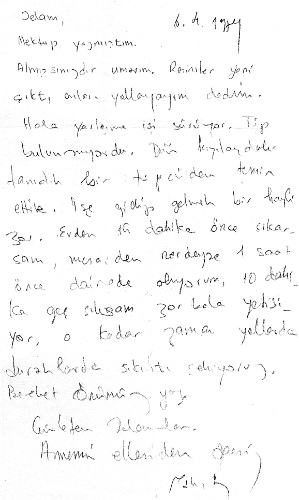 Selam, 6.4.1994
Mektup yazmıştım.
Almışsınızdır umarım. Resimler yeni
çıktı, onları yollayayım dedim.
Hala yerleşme işi sürüyor. Tüp
bulunmuyordu. Dün
tanıdık bir tüpçüden temin
ettik. İşe gidip gelmek bir hayli
zor. Evden 15 dakika önce çıkar-
sam, mesaiden nerdeyse 1 saat
önce dairede oluyorum, 10 daki-
ka geç çıksam zor bela yetişi-
yor, o kadar zaman yollarda
duraklarda sıkıntı çekiyoruz.
Bereket önümüz yaz.
Cümleten selamlar.
Annemin ellerinden